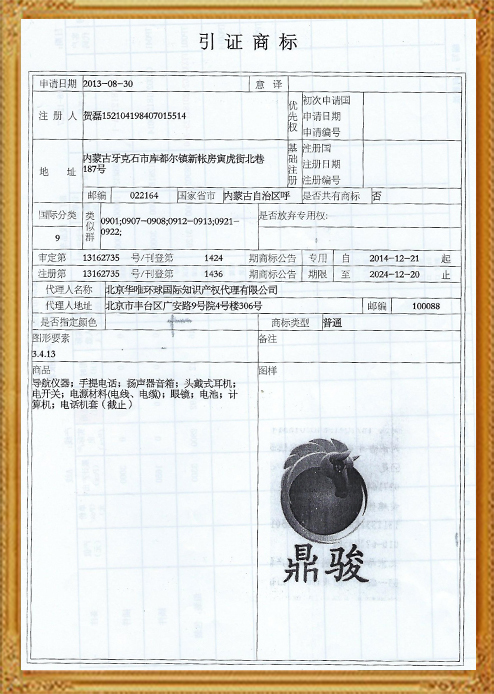 引证商标
申请日期 2013-08-30 意 译
注 册 人 贺磊152104198407015514
优先权 初次申请国
申请日期
申请编号
地 址 内蒙古牙克石市库都尔镇新帐房寅虎街北巷
187号
基础注册 注册国
注册日期
注册编号
邮编 022164 国家省市 内蒙古自治区呼 是否共有商标 否
国际分类 9 类似群 0901;0907-0908;0912-0913;0921-
0922; 是否放弃专用权:
审定第 13162735 号/刊登第 1424 期商标公告 专用 自 2014-12-21 起
注册第 13162735 号/刊登第 1436 期商标公告 期限 至 2024-12-20 止
代理人名称 北京华唯环球国际知识产权代理有限公司
代理人地址 北京市丰台区广安路9号院4号楼306号 邮编 100088
是否指定颜色 商标类型 普通
图形要素 备注
3.4.13
商品 图样
导航仪器；手提电话；扬声器音箱；头戴式耳机；
电开关；电源材料(电线、电缆)；眼镜；电池；计
算机；电话机套（截止）
鼎骏